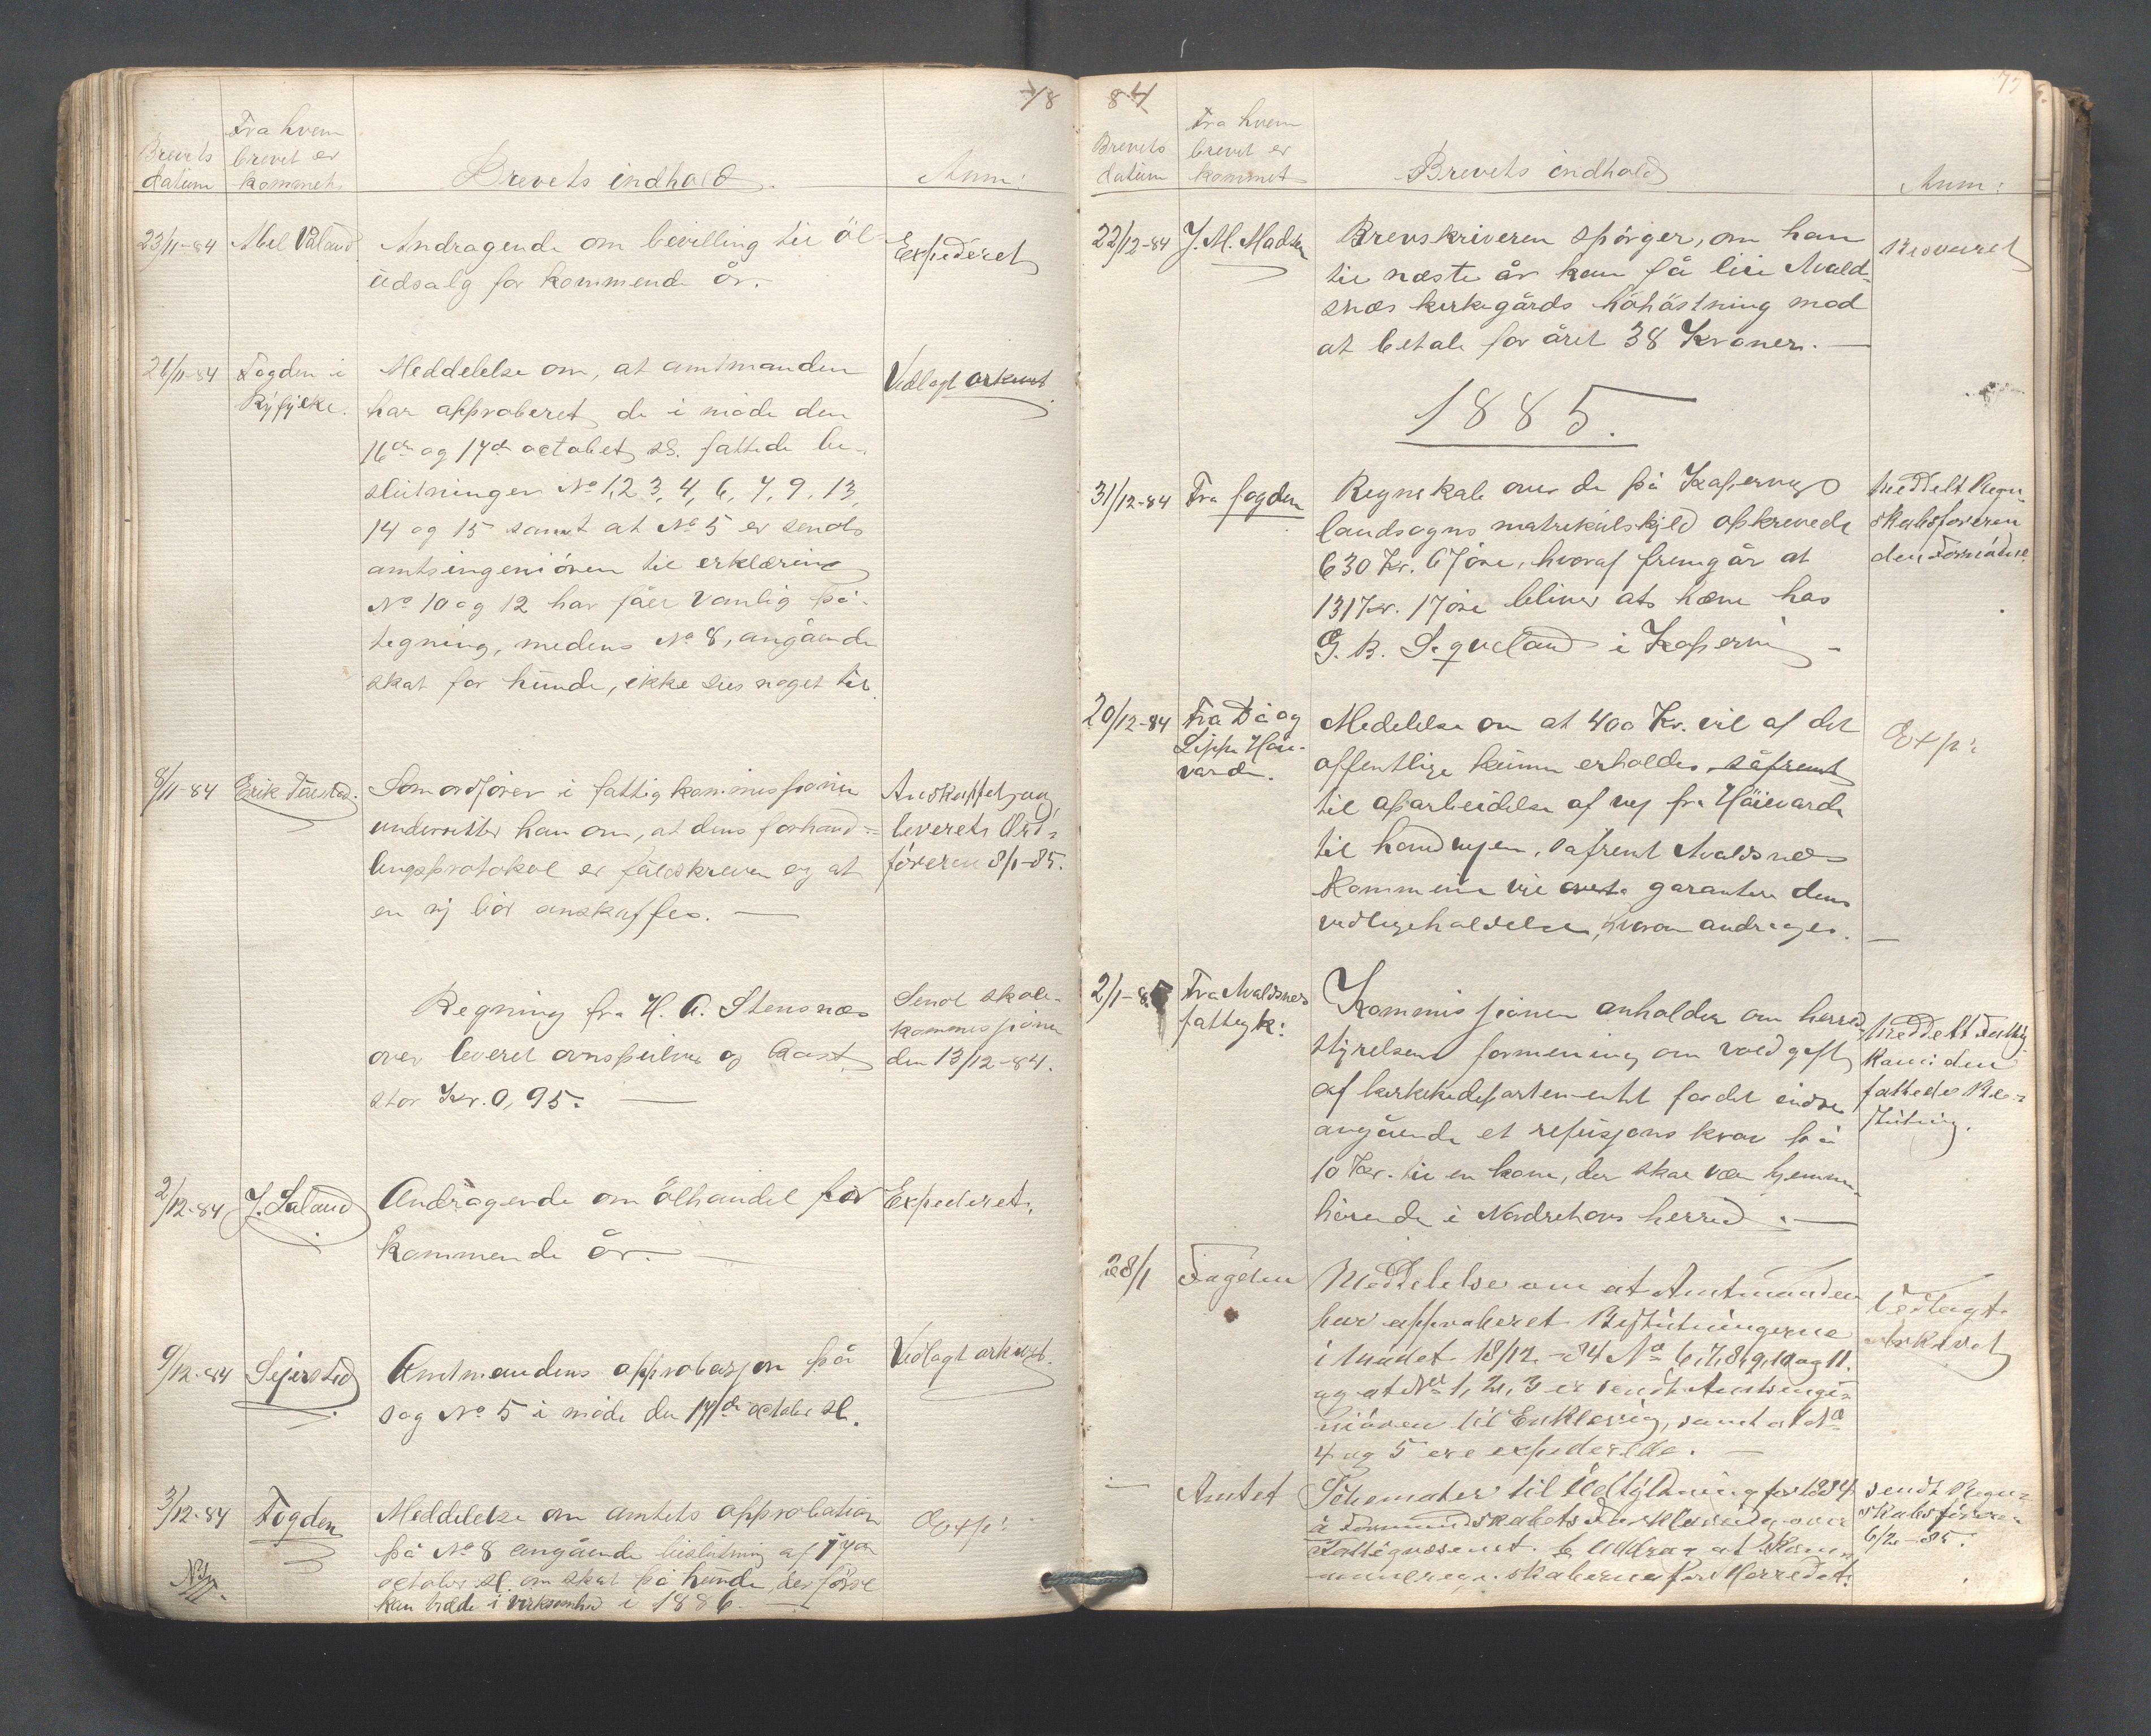 18
Brevets datum
Fra hvem brevet er kommet.
Brevets indhold.
Anm:
23/11-84 Abel Våland
Andragende om bevilling til öl-
udsalg for kommende år.
Expederet
26/11-84 Fogden i
Ryfylke.
Meddelelse om, at amtmanden
har approberet de i møde den
16de og 17de octobet sl. fattede be-
slutninger No 1, 2, 3, 4, 6, 7, 9, 13,
14 og 15 samt at No 5 er sendt
amtsingeniören til erklæring
No 10 og 12 har fået vanlig på-
tegning, medens No 8, angående
skat for hunde, ikke sees noget til.
Vedlagt arkivet
8/11-84 Erik
Som ordförer i fattigkommissionen
underretter han om, at dens forhand-
lingsprotokol er fuldskreven og at
en ny bör anskaffes. —
Anskaffet og
leveret Ord-
föreren 8/1-85.
Regning fra H. A. Stensnæs
over leveret ovnspulver og Kost,
stor Kr. 0,95. —
Sendt skole-
kommissionen
den 13/12-84.
2/12-84 J. Saland
Andragende om ölhandel for
kommende år. —
Expederet.
9/12-84 Sejersted
Amtmandens approbasjon på
sag No 5 i møde den 17de october sl.
Vedlagt arkivet.
3/12-84 Fogden
Meddelelse om amtets approbation
på No 8 angående beslutning af 17de
october sl. om skat på hunde, der först
kan træde i virksomhed i 1886. —
Exp:
84
75
Brevets datum
Fra hvem brevet er kommet
Brevets indhold
Anm:
22/12-84 J. M. Madsen
Brevskriveren spörger, om han
til næste år kan få leie Avalds-
snæs kirkegårds höhöstning mod
at betale for året 38 Kroner. —
Besvaret
1885.
31/12-84 Fra fogden
Regnskab over de på Kopervig
landsogns matrikulskyld opkrevede
630 Kr. 67 öre, hvoraf fremgår at
131 Kr. 17 öre bliver at hæve hos
G. B. Sqveland i Kopervig —
Meddelt Regn-
skabsföreren
20/12-84 Fra Då og
Meddelelse om at 400 Kr. vil af det
offentlige kunne erholdes såfremt
til oparbeidelse af vej fra Håievarde
til hovedvejen, såfremt Avaldsnes
Kommune vil overta garantere dens
vedligeholdelse, hvorom andrages. —
Exp:
2/1-85 Fra Avaldsnes
fattigk:
Kommissionen anholder om herred-
styrelsens formening om voldgift
af kirkedepartementet for det indre
angående et refusjons krav på
10 Kr. til en kone, der skal være hjemme-
hörende i Norderhovs herred. —
Meddelt Fattig
Kom: den
fattede Be-
slutning.
28/1 Fogden
Meddelelse om at Amtmanden
har approberet Beslutningerne
i mødet 18/12-84 No 6, 7, 8, 9, 10 og 11.
og at No 1, 2, 3 er sendt Amtsinge-
niören til Erklæring, samt at No
4 og 5 ere expederede. —
Vedlagt
Arkivet
— Amtet
Schemater til Udfyldning for 1884
a Formundskabets Erklæring over
Fattigvæsenet. b Uddrag af Kom-
muneregnskaberne for Herredet.
sendt Regn-
skabsföreren
6/2-85.